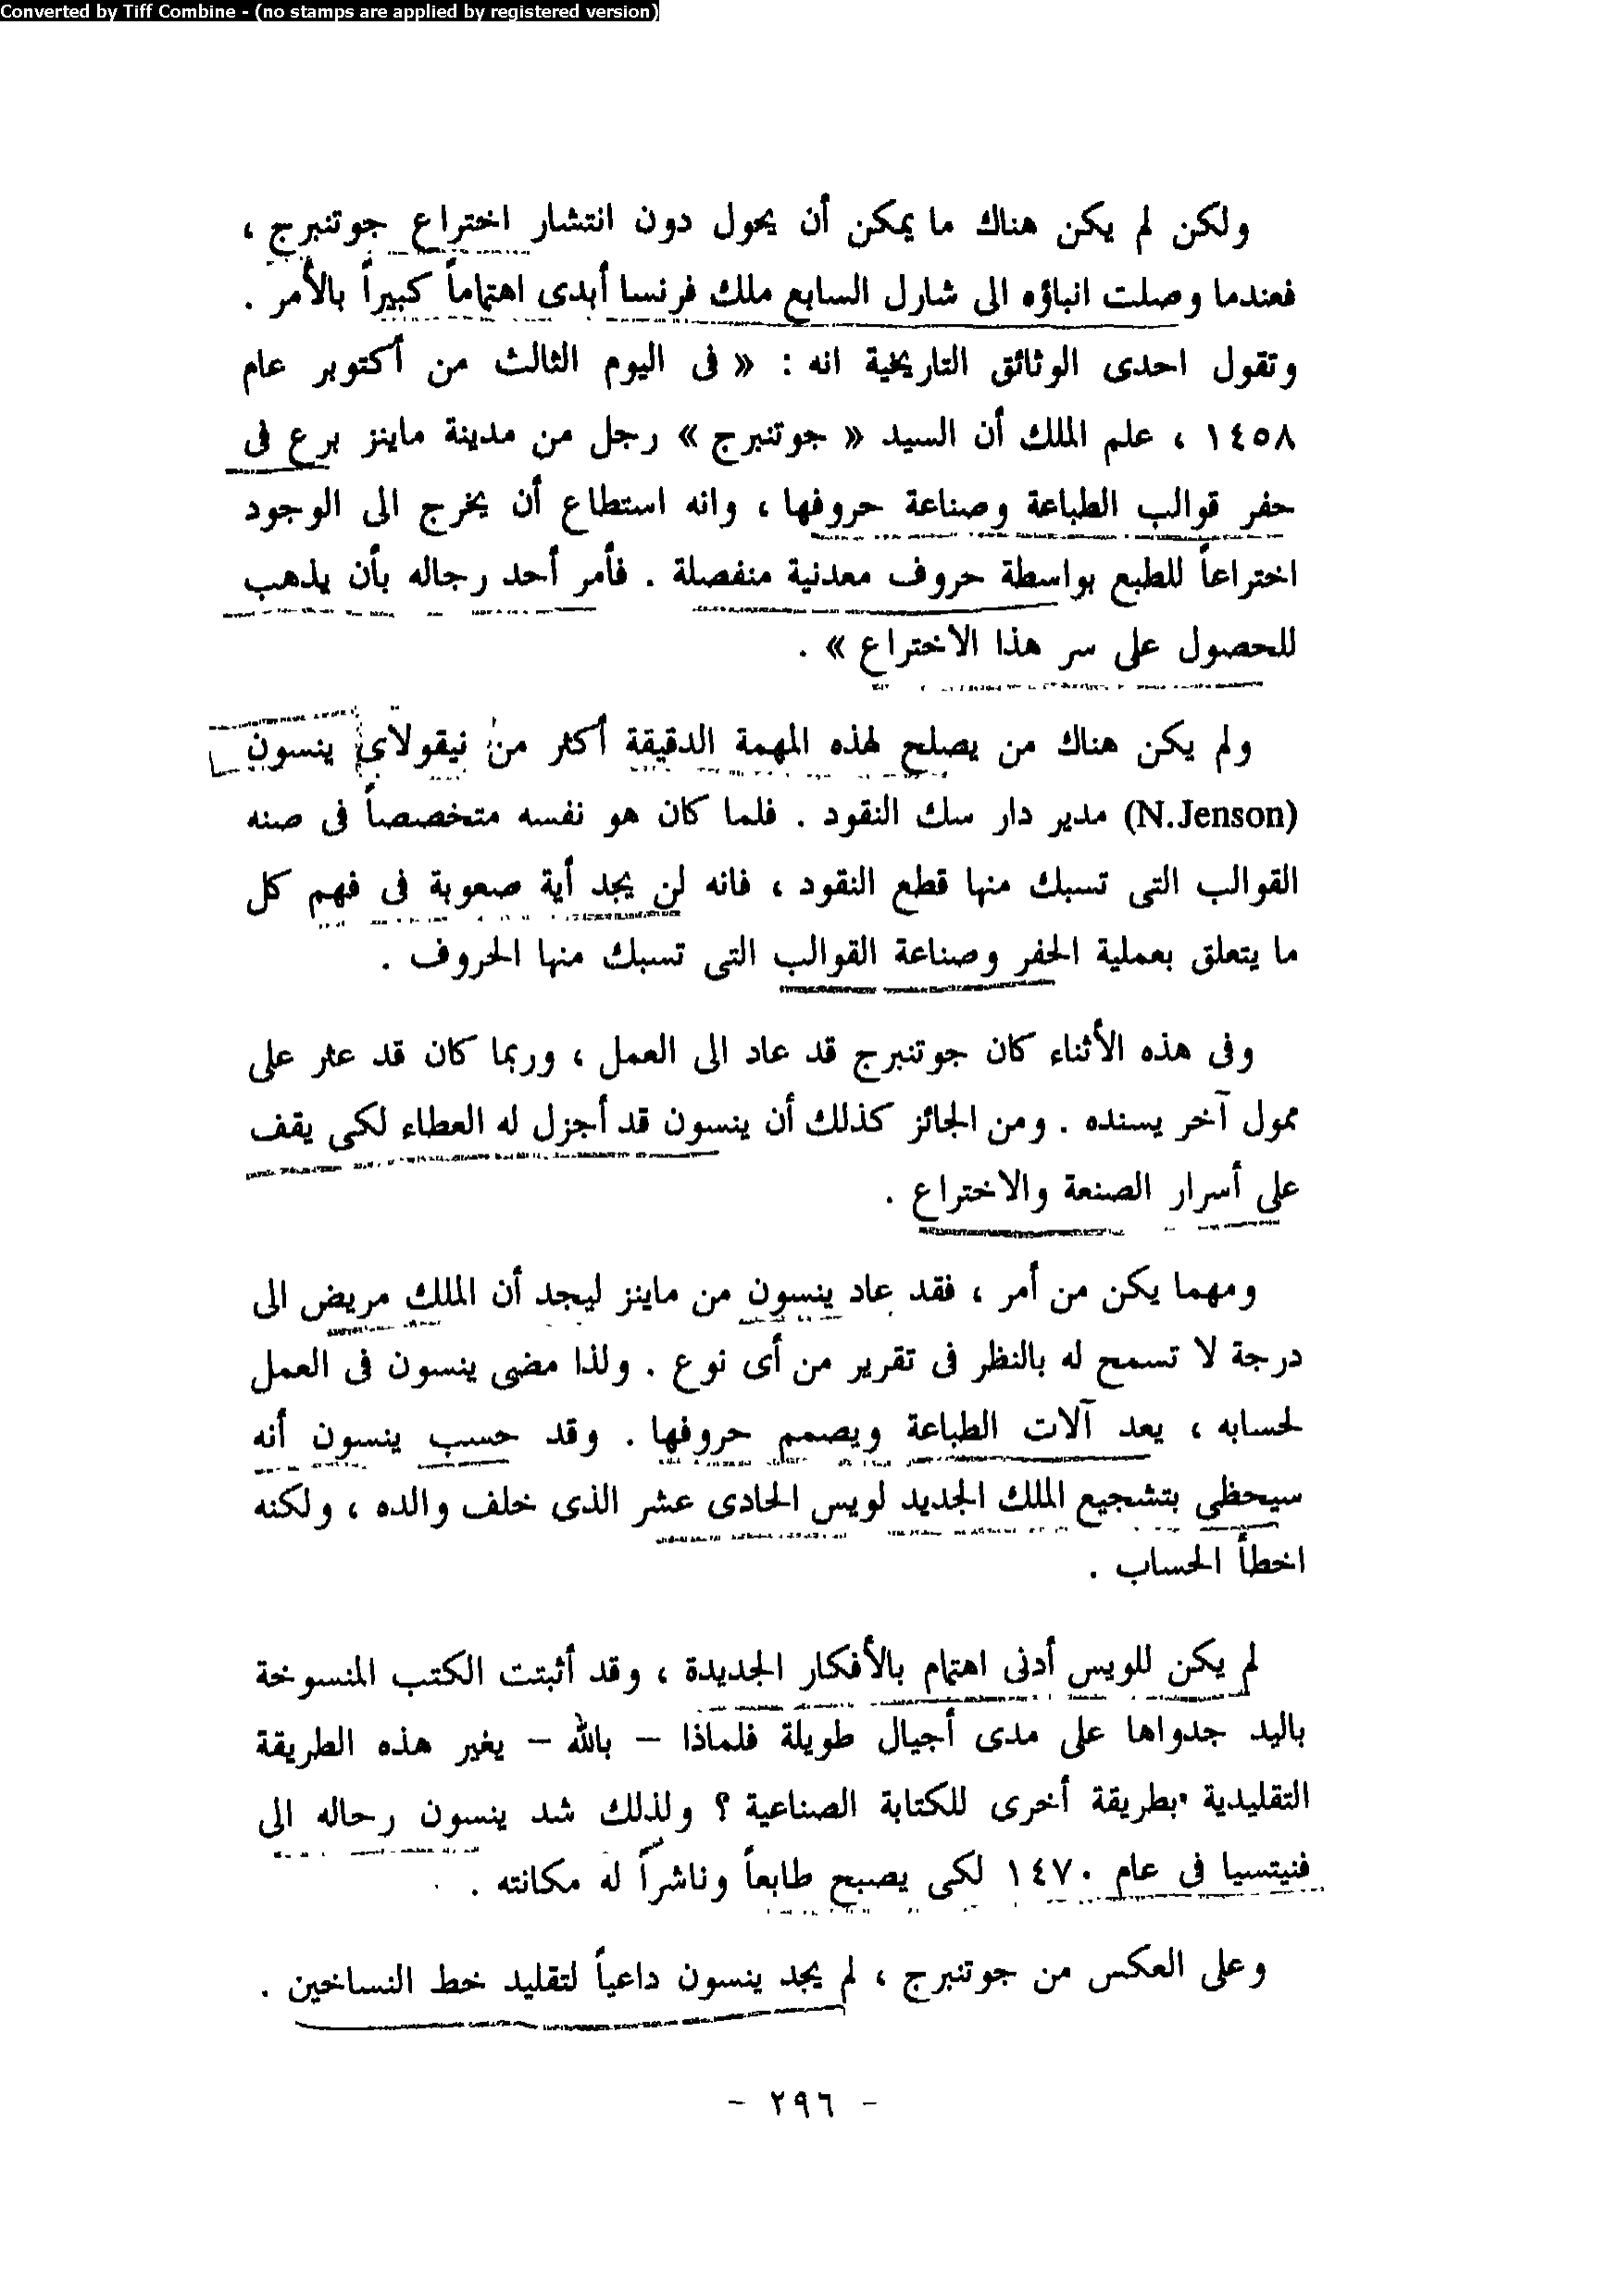 Converted by Tiff Combine - (no stamps are applied by registered version)
ولكن لم يكن هناك ما يمكن أن يحول دون انتشار اختراع جوتنبرج ،
فعندما وصلت انباؤه الى شارل السابع ملك فرنسا أبدى اهتماماً كبيراً بالأمر .
وتقول احدى الوثائق التاريخية انه : « فى اليوم الثالث من أكتوبر عام
١٤٥٨ ، علم الملك أن السيد « جوتنبرج » رجل من مدينة ماينز برع فى
حفر قوالب الطباعة وصناعة حروفها ، وانه استطاع أن يخرج الى الوجود
اختراعاً للطبع بواسطة حروف معدنية منفصلة . فأمر أحد رجاله بأن يذهب
للحصول على سر هذا الاختراع » .
ولم يكن هناك من يصلح لهذه المهمة الدقيقة أكثر من نيقولاى ينسون
(N.Jenson) مدير دار سك النقود . فلما كان هو نفسه متخصصاً فى صنه
القوالب التى تسبك منها قطع النقود ، فانه لن يجد أية صعوبة فى فهم كل
ما يتعلق بعملية الحفر وصناعة القوالب التى تسبك منها الحروف .
وفى هذه الأثناء كان جوتنبرج قد عاد الى العمل ، وربما كان قد عثر على
ممول آخر يسنده . ومن الجائز كذلك أن ينسون قد أجزل له العطاء لكى يقف
على أسرار الصنعة والاختراع .
ومهما يكن من أمر ، فقد عاد ينسون من ماينز ليجد أن الملك مريض الى
درجة لا تسمح له بالنظر فى تقرير من أى نوع . ولذا مضى ينسون فى العمل
لحسابه ، يعد آلات الطباعة ويصمم حروفها . وقد حسب ينسون أنه
سيحظى بتشجيع الملك الجديد لويس الحادى عشر الذى خلف والده ، ولكنه
اخطأ الحساب .
لم يكن للويس أدنى اهتمام بالأفكار الجديدة ، وقد أثبتت الكتب المنسوخة
باليد جدواها على مدى أجيال طويلة فلماذا – بالله – يغير هذه الطريقة
التقليدية بطريقة أخرى للكتابة الصناعية ؟ ولذلك شد ينسون رحاله الى
فنيتسيا فى عام ١٤٧٠ لكى يصبح طابعاً وناشراً له مكانته .
وعلى العكس من جوتنبرج ، لم يجد ينسون داعياً لتقليد خط النساخين .
- ٢٩٦ -